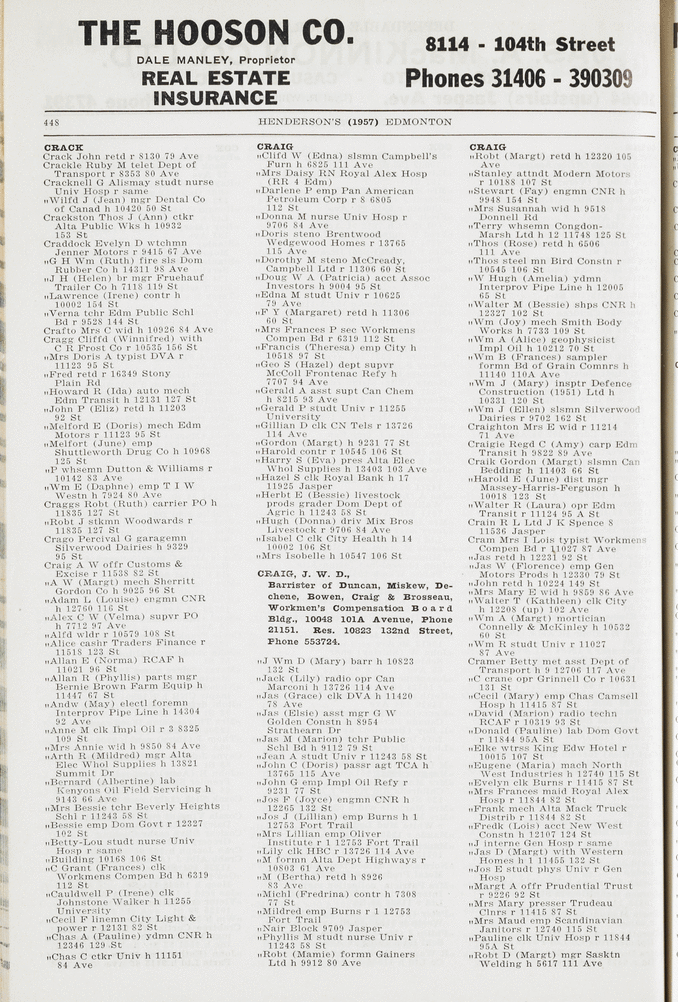 THE HOOSON CO.
DALE MANLEY, Proprietor
REAL ESTATE
INSURANCE
8114 - 104th Street
Phones 31406 - 390309
448
HENDERSON'S (1957) EDMONTON
CRACK
Crack John retd r 8130 79 Ave
Crackle Ruby M telet Dept of
Transport r 8353 80 Ave
Cracknell G Alismay studt nurse
Univ Hosp r same
„Wilfd J (Jean) mgr Dental Co
of Canad h 10420 50 St
Crackston Thos J (Ann) ctkr
Alta Public Wks h 10932
153 St
Craddock Evelyn D wtchmn
Jenner Motors r 9415 67 Ave
„G H Wm (Ruth) fire sls Dom
Rubber Co h 14311 98 Ave
„J H (Helen) br mgr Fruehauf
Trailer Co h 7118 119 St
„Lawrence (Irene) contr h
10002 154 St
„Verna tchr Edm Public Schl
Bd r 9528 144 St
Crafto Mrs C wid h 10926 84 Ave
Cragg Cliffd (Winnifred) with
C R Frost Co r 10535 156 St
„Mrs Doris A typist DVA r
11123 95 St
„Fred retd r 16349 Stony
Plain Rd
„Howard R (Ida) auto mech
Edm Transit h 12131 127 St
„John P (Eliz) retd h 11203
92 St
„Melford E (Doris) mech Edm
Motors r 11123 95 St
„Melfort (June) emp
Shuttleworth Drug Co h 10968
125 St
„P whsemn Dutton & Williams r
10142 83 Ave
„Wm E (Daphne) emp T I W
Westn h 7924 80 Ave
Craggs Robt (Ruth) carrier PO h
11835 127 St
„Robt J stkmn Woodwards r
11835 127 St
Crago Percival G garagemn
Silverwood Dairies h 9329
95 St
Craig A W offr Customs &
Excise r 11538 82 St
„A W (Margt) mech Sherritt
Gordon Co h 9025 96 St
„Adam L (Louise) engmn CNR
h 12760 116 St
„Alex C W (Velma) supvr PO
h 7712 97 Ave
„Alfd wldr r 10579 108 St
„Alice cashr Traders Finance r
11518 123 St
„Allan E (Norma) RCAF h
11021 96 St
„Allan R (Phyllis) parts mgr
Bernie Brown Farm Equip h
11447 67 St
„Andw (May) electl foremn
Interprov Pipe Line h 14304
92 Ave
„Anne M clk Impl Oil r 3 8325
109 St
„Mrs Annie wid h 9850 84 Ave
„Arth R (Mildred) mgr Alta
Elec Whol Supplies h 13821
Summit Dr
„Bernard (Albertine) lab
Kenyons Oil Field Servicing h
9143 66 Ave
„Mrs Bessie tchr Beverly Heights
Schl r 11243 58 St
„Bessie emp Dom Govt r 12327
102 St
„Betty-Lou studt nurse Univ
Hosp r same
„Building 10168 106 St
„C Grant (Frances) clk
Workmens Compen Bd h 6319
112 St
„Cauldwell P (Irene) clk
Johnstone Walker h 11255
University
„Cecil F linemn City Light &
power r 12131 82 St
„Chas A (Pauline) ydmn CNR h
12346 129 St
„Chas C ctkr Univ h 11151
84 Ave
CRAIG
„Clifd W (Edna) slsmn Campbell's
Furn h 6825 111 Ave
„Mrs Daisy RN Royal Alex Hosp
(RR 4 Edm)
„Darlene P emp Pan American
Petroleum Corp r 8 6805
112 St
„Donna M nurse Univ Hosp r
9706 84 Ave
„Doris steno Brentwood
Wedgewood Homes r 13765
115 Ave
„Dorothy M steno McCready,
Campbell Ltd r 11306 60 St
„Doug W A (Patricia) acct Assoc
Investors h 9004 95 St
„Edna M studt Univ r 10625
79 Ave
„F Y (Margaret) retd h 11306
60 St
„Mrs Frances P sec Workmens
Compen Bd r 6319 112 St
„Francis (Theresa) emp City h
10518 97 St
„Geo S (Hazel) dept supvr
McColl Frontenac Refy h
7707 94 Ave
„Gerald A asst supt Can Chem
h 8215 93 Ave
„Gerald P studt Univ r 11255
University
„Gillian D clk CN Tels r 13726
114 Ave
„Gordon (Margt) h 9231 77 St
„Harold contr r 10545 106 St
„Harry S (Eva) pres Alta Elec
Whol Supplies h 13403 103 Ave
„Hazel S clk Royal Bank h 17
11925 Jasper
„Herbt E (Bessie) livestock
prods grader Dom Dept of
Agric h 11243 58 St
„Hugh (Donna) driv Mix Bros
Livestock r 9706 84 Ave
„Isabel C clk City Health h 14
10002 106 St
„Mrs Isobelle h 10547 106 St
CRAIG, J. W. D.,
Barrister of Duncan, Miskew, De-
chene, Bowen, Craig & Brosseau,
Workmen's Compensation Board
Bldg., 10048 101A Avenue, Phone
21151. Res. 10823 132nd Street,
Phone 553724.
„J Wm D (Mary) barr h 10823
132 St
„Jack (Lily) radio opr Can
Marconi h 13726 114 Ave
„Jas (Grace) clk DVA h 11420
78 Ave
„Jas (Elsie) asst mgr G W
Golden Constn h 8954
Strathearn Dr
„Jas M (Marion) tchr Public
Schl Bd h 9112 79 St
„Jean A studt Univ r 11243 58 St
„John C (Doris) passr agt TCA h
13765 115 Ave
„John G emp Impl Oil Refy r
9231 77 St
„Jos F (Joyce) engmn CNR h
12265 132 St
„Jos J (Lillian) emp Burns h 1
12753 Fort Trail
„Mrs Lillian emp Oliver
Institute r 1 12753 Fort Trail
„Lily clk HBC r 13726 114 Ave
„M formn Alta Dept Highways r
10803 61 Ave
„M (Bertha) retd h 8926
83 Ave
„Michl (Fredrina) contr h 7308
77 St
„Mildred emp Burns r 1 12753
Fort Trail
„Nair Block 9709 Jasper
„Phyllis M studt nurse Univ r
11243 58 St
„Robt (Mamie) formn Gainers
Ltd h 9912 80 Ave
CRAIG
„Robt (Margt) retd h 12320 105
Ave
„Stanley attndt Modern Motors
r 10188 107 St
„Stewart (Fay) engmn CNR h
9948 154 St
„Mrs Susannah wid h 9518
Donnell Rd
„Terry whsemn Congdon-
Marsh Ltd h 12 11748 125 St
„Thos (Rose) retd h 6506
111 Ave
„Thos steel mn Bird Constn r
10545 106 St
„W Hugh (Amelia) ydmn
Interprov Pipe Line h 12005
65 St
„Walter M (Bessie) shps CNR h
12327 102 St
„Wm (Joy) mech Smith Body
Works h 7733 109 St
„Wm A (Alice) geophysicist
Impl Oil h 10212 70 St
„Wm B (Frances) sampler
formn Bd of Grain Comnrs h
11140 110A Ave
„Wm J (Mary) insptr Defence
Construction (1951) Ltd h
10331 120 St
„Wm J (Ellen) slsmn Silverwood
Dairies r 9702 162 St
Craighton Mrs E wid r 11214
71 Ave
Craigie Regd C (Amy) carp Edm
Transit h 9822 89 Ave
Craik Gordon (Margt) slsmn Can
Bedding h 11403 66 St
„Harold E (June) dist mgr
Massey-Harris-Ferguson h
10018 123 St
„Walter R (Laura) opr Edm
Transit r 11124 95 A St
Crain R L Ltd J K Spence 8
11536 Jasper
Cram Mrs I Lois typist Workmens
Compen Bd r 11027 87 Ave
„Jas retd h 12231 92 St
„Jas W (Florence) emp Gen
Motors Prods h 12330 79 St
„John retd h 10224 149 St
„Mrs Mary E wid h 9859 86 Ave
„Walter T (Kathleen) clk City
h 12208 (up) 102 Ave
„Wm A (Margt) mortician
Connelly & McKinley h 10532
60 St
„Wm R studt Univ r 11027
87 Ave
Cramer Betty met asst Dept of
Transport h 9 12706 117 Ave
„C crane opr Grinnell Co r 10631
131 St
„Cecil (Mary) emp Chas Camsell
Hosp h 11415 87 St
„David (Marion) radio techn
RCAF r 10319 93 St
„Donald (Pauline) lab Dom Govt
r 11844 95A St
„Elke wtrss King Edw Hotel r
10015 107 St
„Eugene (Maria) mach North
West Industries h 12740 115 St
„Evelyn clk Burns r 11415 87 St
„Mrs Frances maid Royal Alex
Hosp r 11844 82 St
„Frank mech Alta Mack Truck
Distrib r 11844 82 St
„Fredk (Lois) acct New West
Constn h 12107 124 St
„J interne Gen Hosp r same
„Jas D (Margt) with Western
Homes h 1 11455 132 St
„Jos E studt phys Univ r Gen
Hosp
„Margt A offr Prudential Trust
r 9226 92 St
„Mrs Mary presser Trudeau
Clnrs r 11415 87 St
„Mrs Maud emp Scandinavian
Janitors r 12740 115 St
„Pauline clk Univ Hosp r 11844
95A St
„Robt D (Margt) mgr Sasktn
Welding h 5617 111 Ave